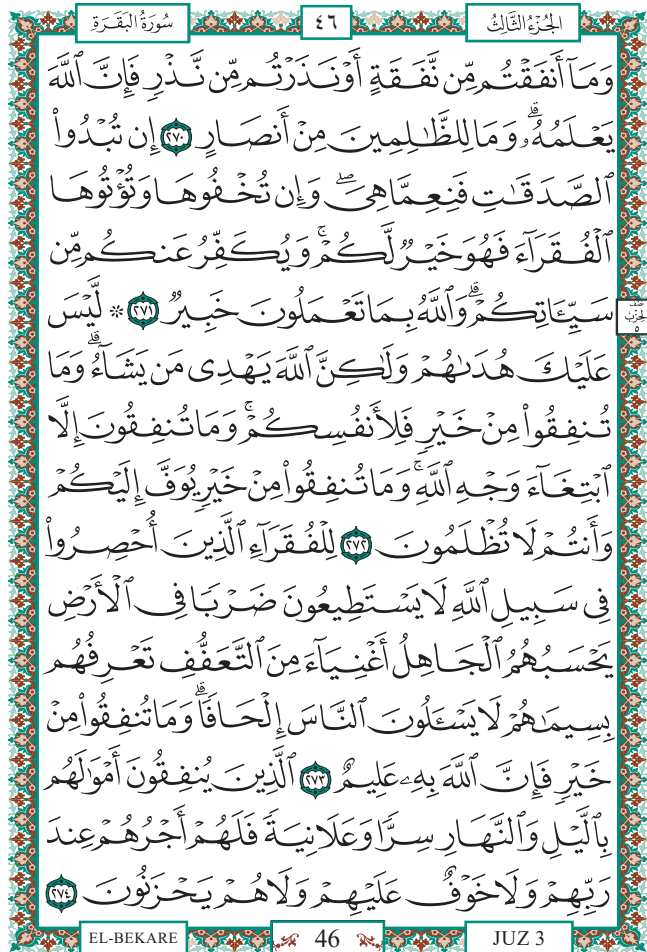 سُورَةُ الْبَقَرَةِ ٤٦ الْجُزْءُ الثَّالِثُ
وَمَآ أَنفَقْتُم مِّن نَّفَقَةٍ أَوْ نَذَرْتُم مِّن نَّذْرٍ فَإِنَّ ٱللَّهَ
يَعْلَمُهُۥۗ وَمَا لِلظَّٰلِمِينَ مِنْ أَنصَارٍ ٢٧٠ إِن تُبْدُوا۟
ٱلصَّدَقَٰتِ فَنِعِمَّا هِىَۖ وَإِن تُخْفُوهَا وَتُؤْتُوهَا
ٱلْفُقَرَآءَ فَهُوَ خَيْرٌ لَّكُمْۚ وَيُكَفِّرُ عَنكُم مِّن
سَيِّـَٔاتِكُمْۗ وَٱللَّهُ بِمَا تَعْمَلُونَ خَبِيرٌ ٢٧١ * لَّيْسَ
نصف الحزب ٥
عَلَيْكَ هُدَىٰهُمْ وَلَٰكِنَّ ٱللَّهَ يَهْدِى مَن يَشَآءُۗ وَمَا
تُنفِقُوا۟ مِنْ خَيْرٍ فَلِأَنفُسِكُمْۚ وَمَا تُنفِقُونَ إِلَّا
ٱبْتِغَآءَ وَجْهِ ٱللَّهِۚ وَمَا تُنفِقُوا۟ مِنْ خَيْرٍ يُوَفَّ إِلَيْكُمْ
وَأَنتُمْ لَا تُظْلَمُونَ ٢٧٢ لِلْفُقَرَآءِ ٱلَّذِينَ أُحْصِرُوا۟
فِى سَبِيلِ ٱللَّهِ لَا يَسْتَطِيعُونَ ضَرْبًا فِى ٱلْأَرْضِ
يَحْسَبُهُمُ ٱلْجَاهِلُ أَغْنِيَآءَ مِنَ ٱلتَّعَفُّفِ تَعْرِفُهُم
بِسِيمَٰهُمْ لَا يَسْـَٔلُونَ ٱلنَّاسَ إِلْحَافًاۗ وَمَا تُنفِقُوا۟ مِنْ
خَيْرٍ فَإِنَّ ٱللَّهَ بِهِۦ عَلِيمٌ ٢٧٣ ٱلَّذِينَ يُنفِقُونَ أَمْوَٰلَهُم
بِٱلَّيْلِ وَٱلنَّهَارِ سِرًّا وَعَلَانِيَةً فَلَهُمْ أَجْرُهُمْ عِندَ
رَبِّهِمْ وَلَا خَوْفٌ عَلَيْهِمْ وَلَا هُمْ يَحْزَنُونَ ٢٧٤
EL-BEKARE 46 JUZ 3